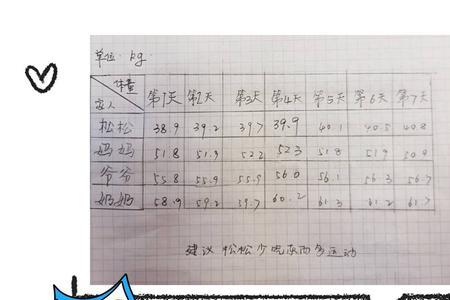 单位:kg
体重
家人 第1天 第2天 第3天 第4天 第5天 第6天 第7天
松松 38.9 39.2 39.7 39.9 40.1 40.5 40.8
妈妈 51.8 51.9 52.2 52.3 51.8 51.9
爷爷 55.8 55.9 55.9 56.0 56.1 56.3 56.7
奶奶 58.9 59.2 59.7 60.2 61.3 61.2 61.7
建议 松松少吃东西多运动